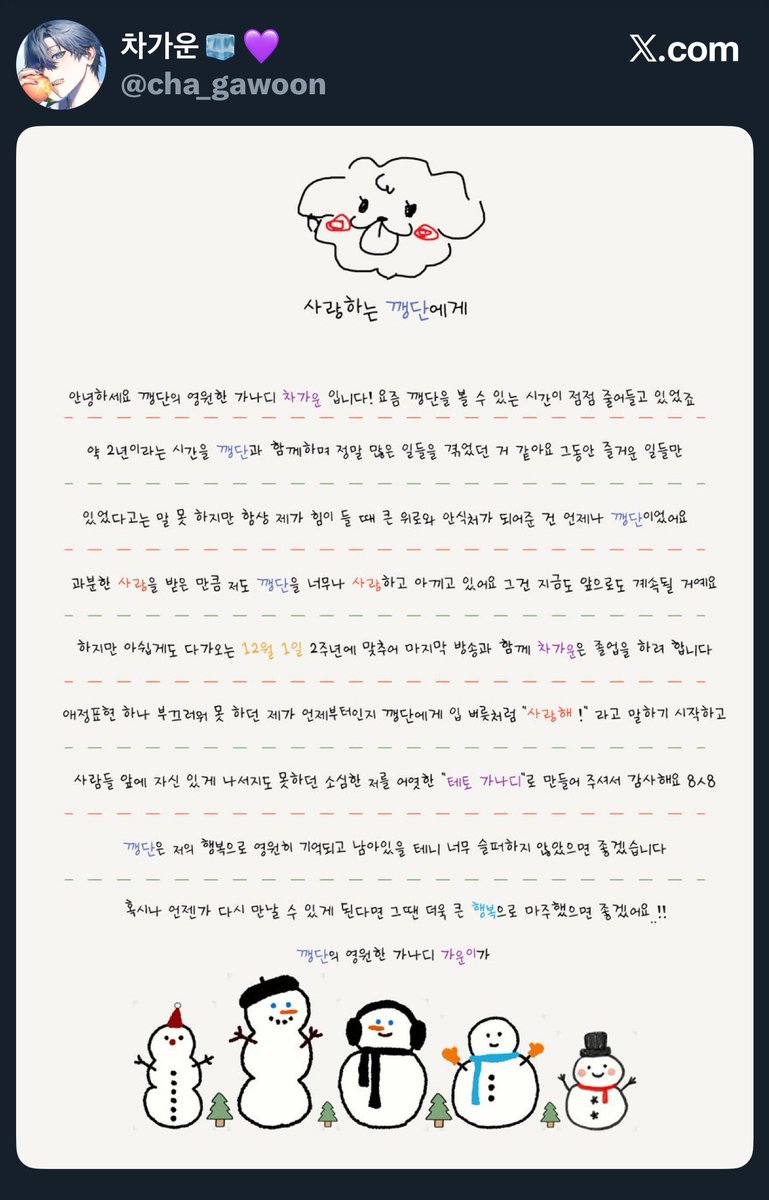 차가운🧊💜
@cha_gawoon
X.com
사랑하는 깽단에게
안녕하세요 깽단의 영원한 가나디 차가운 입니다! 요즘 깽단을 볼 수 있는 시간이 점점 줄어들고 있었죠
약 2년이라는 시간을 깽단과 함께하며 정말 많은 일들을 겪었던 거 같아요 그동안 즐거운 일들만
있었다고는 말 못 하지만 항상 제가 힘이 들 때 큰 위로와 안식처가 되어준 건 언제나 깽단이었어요
과분한 사랑을 받은 만큼 저도 깽단을 너무나 사랑하고 아끼고 있어요 그건 지금도 앞으로도 계속될 거예요
하지만 아쉽게도 다가오는 12월 1일 2주년에 맞추어 마지막 방송과 함께 차가운은 졸업을 하려 합니다
애정표현 하나 부끄러워 못 하던 제가 언제부터인지 깽단에게 입 버릇처럼 "사랑해!" 라고 말하기 시작하고
사람들 앞에 자신 있게 나서지도 못하던 소심한 저를 어엿한 "테토 가나디"로 만들어 주셔서 감사해요 8ㅅ8
깽단은 저의 행복으로 영원히 기억되고 남아있을 테니 너무 슬퍼하지 않았으면 좋겠습니다
혹시나 언젠가 다시 만날 수 있게 된다면 그땐 더욱 큰 행복으로 마주했으면 좋겠어요..!!
깽단의 영원한 가나디 가운이가